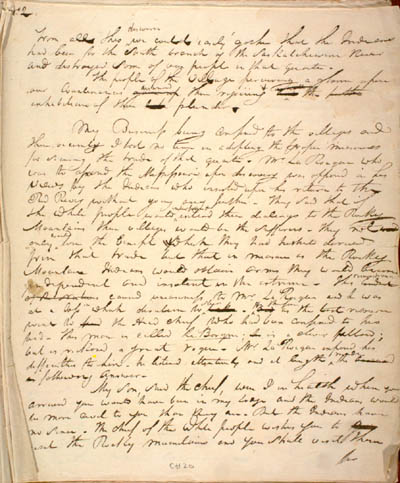 From all this we could easily gather that the Indians
had been for the South branch of the Saskatchewan River
and destroyed some of our people in that quarter.
The people of the Village perceiving a gloom upon
our Countenances then
inhabitants of the
My Business being confined to the village and
I lost no time in adopting the proper measures
for securing the trade of that quarter. Mr La Rocque who
was to the Mississouri upon was opposed in his
views by the Indians who insisted upon his return to the
Red River without going any further. They said that if
the White people would extend their dealings to the Rocky
Mountains their villages would be the sufferers. They not
only lose the benefit which they had hitherto derived
from that trade but that in measure as the Rocky
Mountain Indians would obtain arms they would become
independent and insolent in the extreme. This
caused uneasiness to Mr La Rocque and he was
at a loss which direction to take. For this reason
went to the Chief who had been confined to his
bed. This man is called le Borgne. he is a clever fellow
but is a great rogue. Mr La Rocque his
difficulties to him. he listened attentively and at length
following answer.
My son said the Chief, were I in health when you
arrived you would have been in my lodge and the Indians would
be more civil to you than they are. But the Indians have
no sense. The Chief of the White people wishes you to
visit the Rocky mountains and you shall visit them
for
CH20